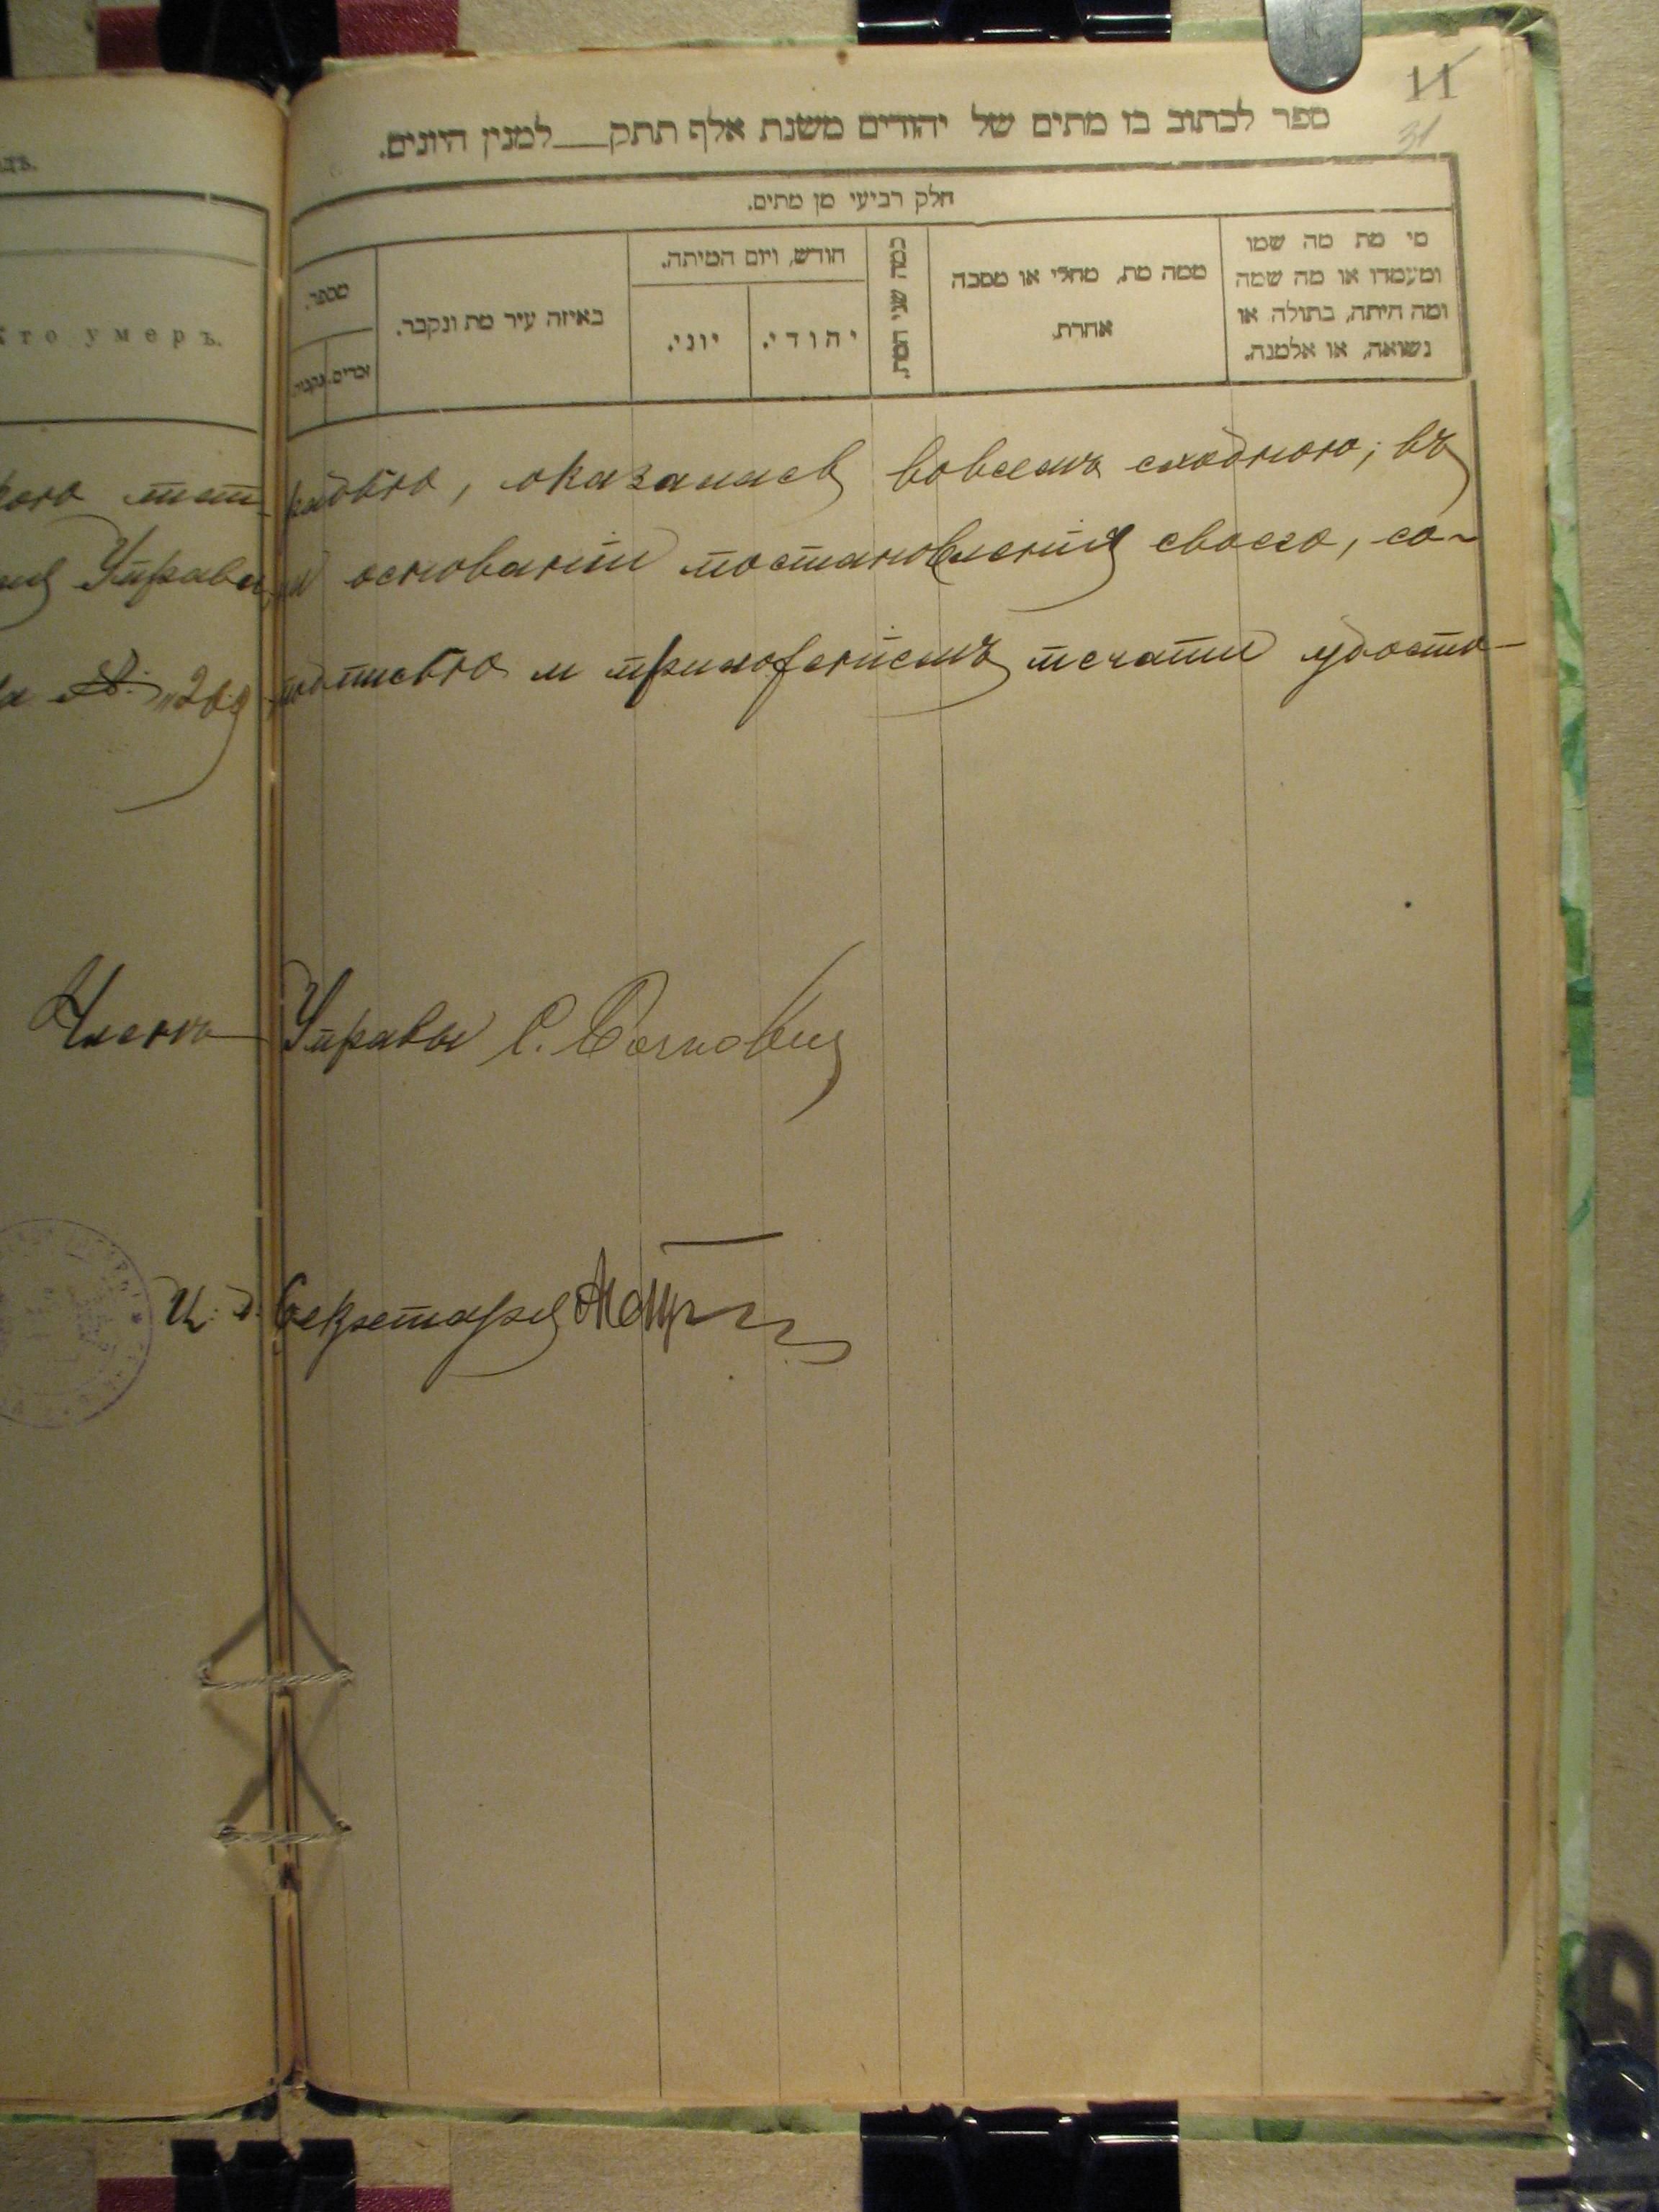 11
31
ספר לכתוב בו מתים של יהודים משנת אלף תתק___למנין היונים.
חלק רביעי מן מתים.
מי מת מה שמו
ומעמדו או מה שמה
ומה היתה, בתולה או
נשואה, או אלמנה.
ממה מת, מחלי או מסבה
אחרת
כמה שני המת.
חודש, ויום המיתה.
יהודי.
יוני.
באיזה עיר מת ונקבר.
מספר.
זכרים.
נקבות.
Кто умеръ.
тетрадью, оказалась вовсемъ сходною; въ
Управа, и основаніи постановленія своего, со-
209 подписью и приложеніемъ печати удосто-
Членъ Управы С.
И. д. Секретаря